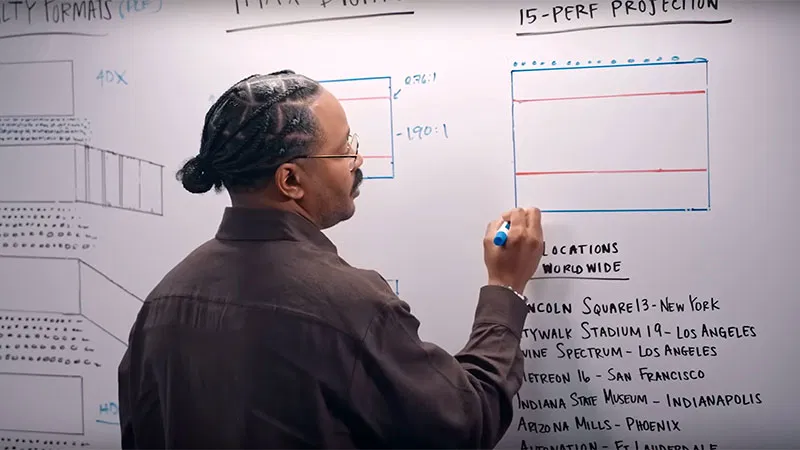 LTY FORMATS (PLF)
IMAX DIGITAL
15-PERF PROJECTION
4DX
2.76:1
-1.90:1
LOCATIONS
WORLDWIDE
NCOLN SQUARE 13 - NEW YORK
TYWALK STADIUM 19 - LOS ANGELES
VINE SPECTRUM - LOS ANGELES
METREON 16 - SAN FRANCISCO
INDIANA STATE MUSEUM - INDIANAPOLIS
ARIZONA MILLS - PHOENIX
AUTONATION - FT LAUDERDALE